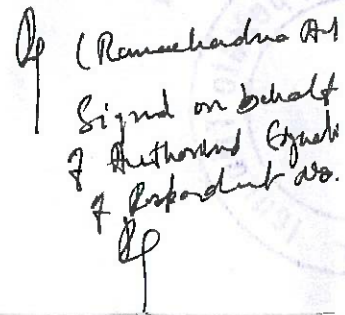 (Ramachandra
Signed on behalf
of Authorised
of Respondent No.